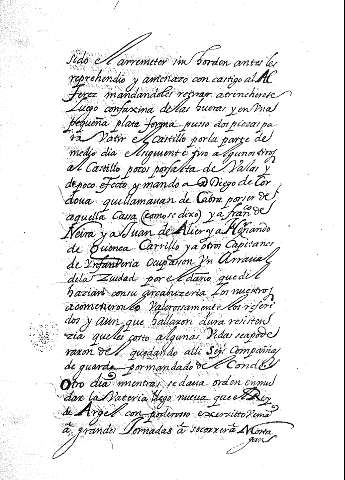 sido el arremeter sin horden antes les
reprehendio y amenazo con castigo al Al
ferez mandandoles retirar atrincherose
Luego con faxina de las huertas y en una
pequeña plata forma pusso dos piezas pa
ra Vatir el Castillo por la parte de
medio dia el siguiente tiro algunos tiros
al Castillo pocos por falta de Valas y
de poco efecto, y mando a D Diego de Cor
dova que llamavan de Cabra por ser de
aquella Cassa (como se dixo) y a franco de
Neira y a Juan de Alier y a Hernando
de Guenca Carrillo y a otros Capitanes
de Ynfanteria ocupassen Vn Arraval
de la Ziudad por el daño que de el
hazian con su arcabuzeria los nuestros
acometieronlo Valerossamente los referi
dos y aun que hallaron dura resisten
zia que les costo algunas Vidas se apode
raron de el quedando alli seis Compañias
de guarda por mandado de el Conde
Otro dia mientras se dava orden en mu
dar la Vateria llego nueva que el Rey
de Argel con poderoso exercito venia
a grandes Jornadas a socorrer a Mosta
gan